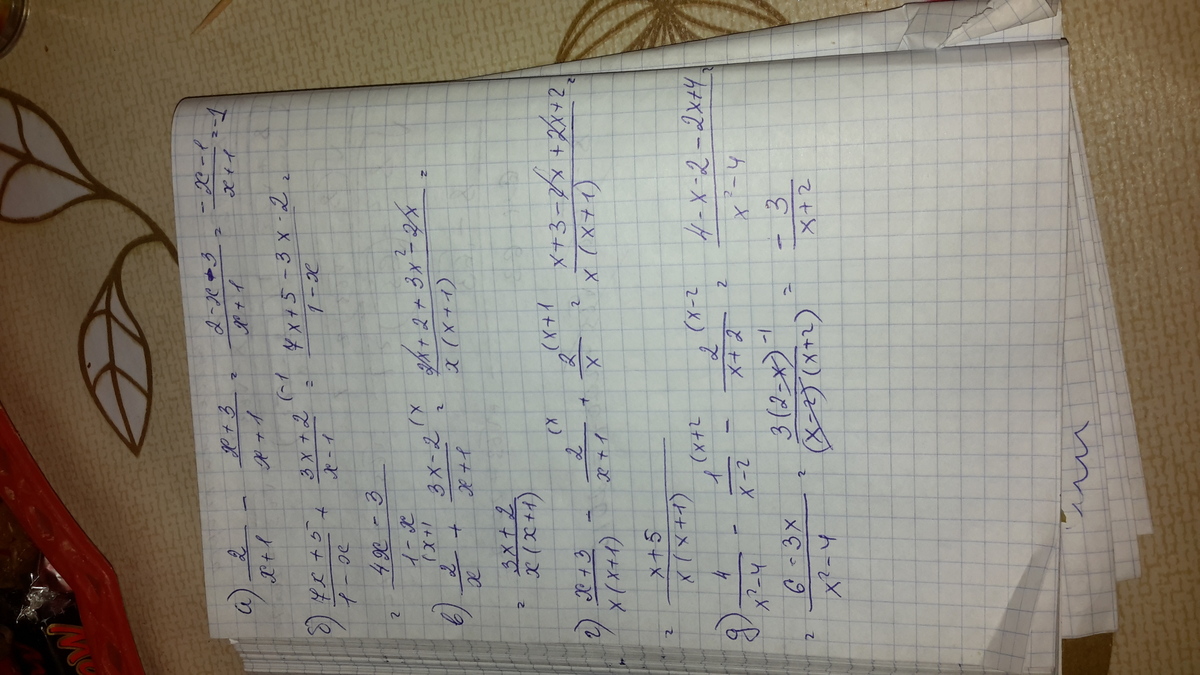 а) 2/(x+1) - (x+3)/(x+1) = (2-x-3)/(x+1) = (-x-1)/(x+1) = -1
б) (7x+5)/(1-x) + (3x+2)/(x-1) (-1 = (7x+5-3x-2)/(1-x) =
= (4x-3)/(1-x)
в) 2/x (x+1 + (3x-2)/(x+1) (x = (2x+2+3x²-2x)/(x(x+1)) =
= (3x+2)/(x(x+1))
г) (x+3)/(x(x+1)) - 2/(x+1) (x + 2/x (x+1 = (x+3-2x+2x+2)/(x(x+1)) =
= (x+5)/(x(x+1))
д) 4/(x²-4) - 1/(x-2) (x+2 - 2/(x+2) (x-2 = (4-x-2-2x+4)/(x²-4) =
= (6-3x)/(x²-4) = 3(2-x) -1/((x-2)(x+2)) = -3/(x+2)